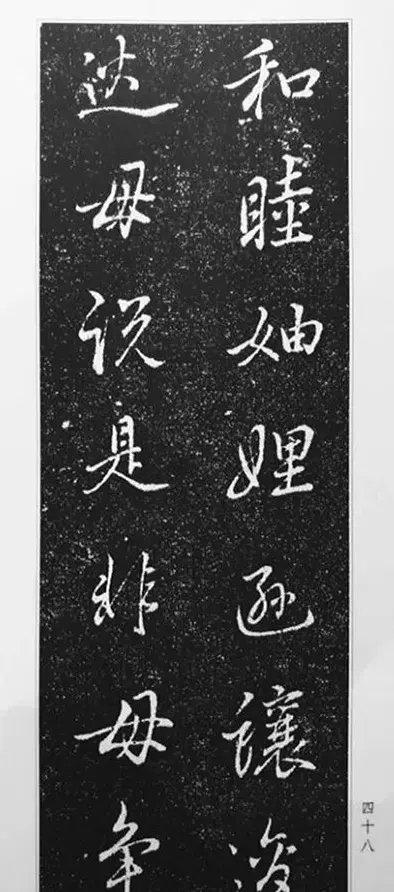 和睦妯娌遜讓
毋説是非毋争
四十八